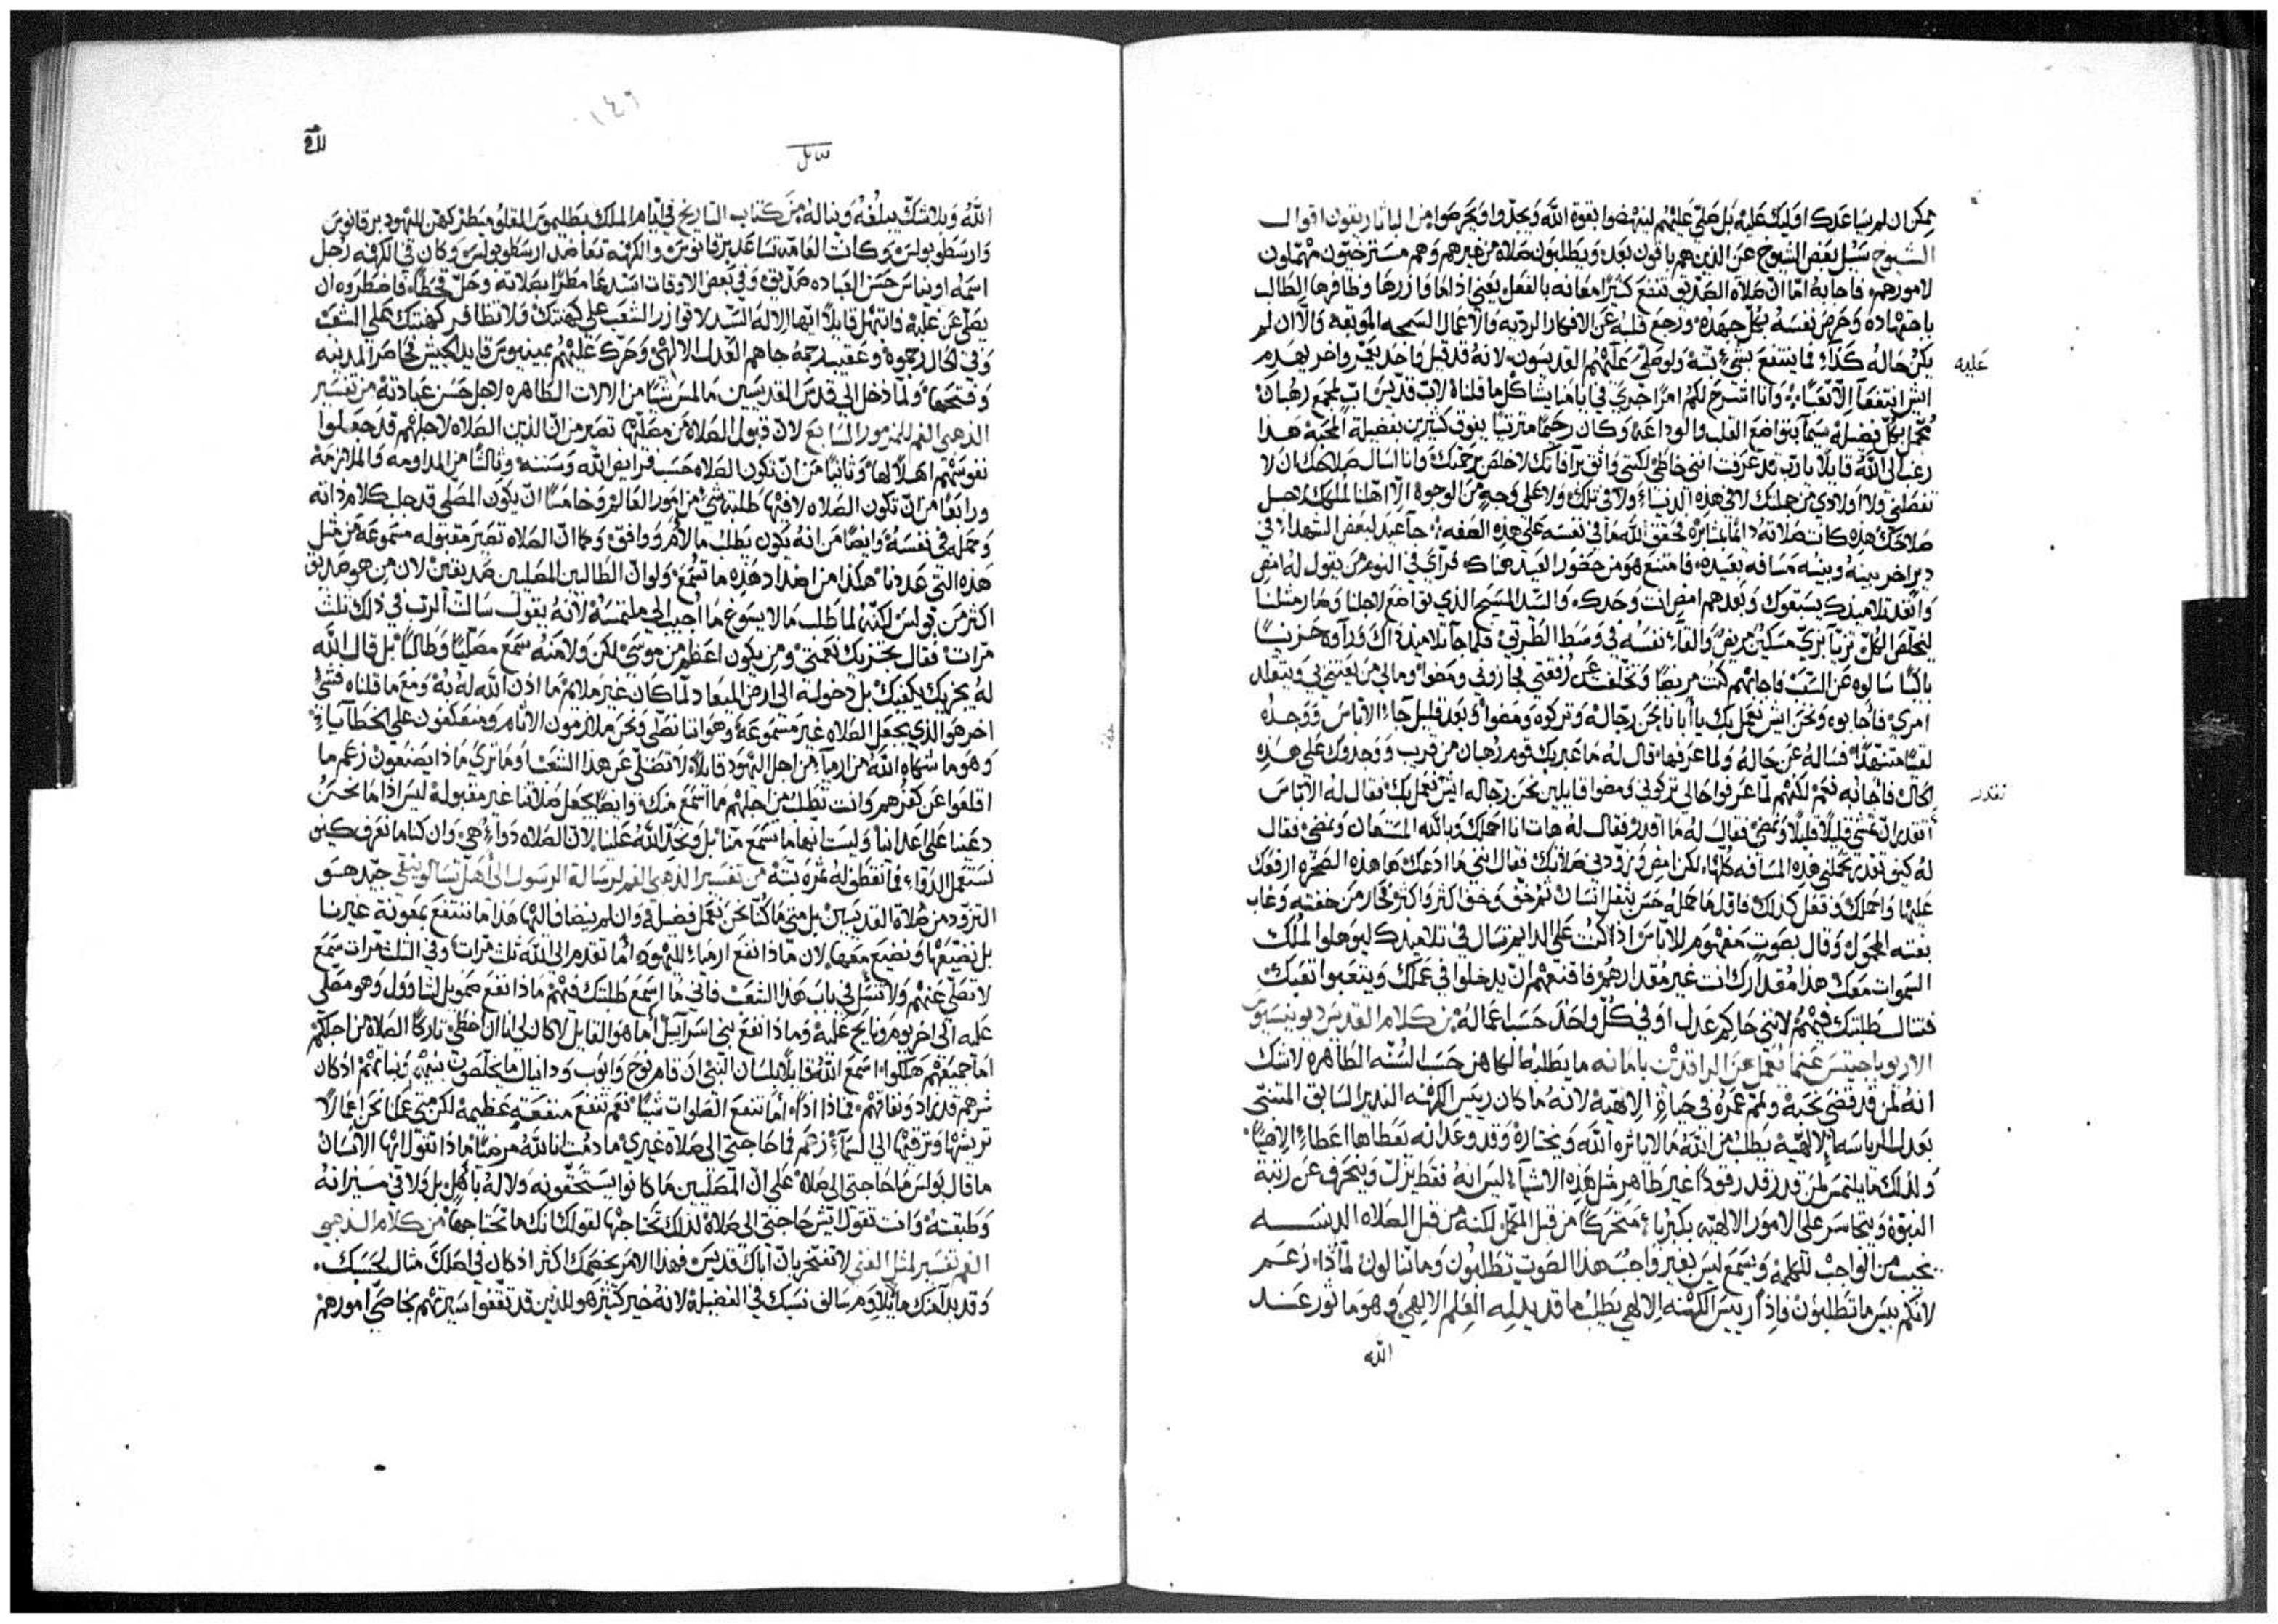 يمكن ان لم يساعدك اوليك عليه بل صلي عليهم لينهضوا بقوة الله ويجدوا ويحرصوا من الباناريقون اقوال
الشيوخ سيل بعض الشيوخ عن الذين هم باقون بعد ويطلبون صلاه من غيرهم وهم مسترخيون مهملون
لامورهم فاجابه اما ان صلاه الصديق تنفع كثيرًا معانه بالفعل يعني اذا اعاوازرها وظافرها الطالب
باجتهاده وحرص نفسه بكل جهده ورجع قلبه عن الافكار الرديه والاعمال السمجه الموبقه والا ان لم
يكن حاله كذا فما ينتفع بشي بته ولو صلي عليهم القديسون لانه قد قيل واحد يعمر واخر يهدم
عليه
ايش انتفعا الا تعبا وانا اشرح لكم امرًا جري في بامنا يشاكل ما قلناه لاب قديس اب لمجمع رهبان
مجمل بكل فضيله سيما بتواضع القلب والوداعه وكان رحيمًا مترثيًا يفوق كثيرين بفضيلة المحبه هذا
رغب الى الله قايلا يارب قد عرفت انني خاطي لكني واثق برآفاتك لاخلص برحمتك وانا اسال صلاحك ان لا
تفصلني ولا اولادي من جملتك لا في هذه الدنيا ولا في تلك ولا على وجه من الوجوه الا اهلنا لملكك لاجل
صلاحك هذه كانت صلاته دايما لمثابره فحقق الله ما في نفسه على هذه الصفه جا عيد لبعض الشهدا في
دير اخر بينه وبينه مسافه بعيده فامتنع هو من حضور العيد هناك فراي في النوم من يقول له امض
وانفذ تلاميذك يسبقوك وبعدهم امض انت وحدك والسيد المسيح الذي تواضع لاجلنا وصار مثلنا
ليخلص الكل تزيا بزي مسكين مريض والقا نفسه في وسط الطريق فلما جا تلاميذ ذاك وراوه حزينًا
باكيًا سالوه عن السبب فاجابهم كنت مريضًا وتخلفت عن رفقتي فجازوني ومضوا ومالي من يعينني ويتقلد
امري فاجابوه ونحن ايش نعمل بك يا ابانا نحن رجاله وتركوه ومضوا وبعد قليل جاء الاناس ووجده
لقا متنهدًا فساله عن حاله ولما عرفها قال له ما عبر بك قوم رهبان من قريب ووجدوك على هذه
الحال فاجابه نعم لكنهم لما عرفوا حالي تركوني ومضوا قايلين نحن رجاله ايش نعمل بك فقال له الاناس
تقدر
اتقدر ان تمشي قليلًا قليلًا ونمضي فقال له ما اقدر فقال له هات انا احملك وبالله المستعان ونمضي فقال
له كيف تقدر تحملني هذه المسافه كلها لكن امض وزودني صلاتك فقال انني ما ادعك ها هذه الصخره ارفعك
عليها واحملك وفعل كذلك فاول ما حمله حس بثقل انسان ثم خف وخف اكثر واكثر فحار من خفته وغاب
بغته المحمول وقال بصوت مفهوم للاناس اذا كنت على الدايم تسال في تلاميذك ليوهلوا لملك
السموات معك هذا مقدارك انت غير مقدارهم فاقنعهم ان يدخلوا في عملك ويتعبوا تعبك
فتنال طلبتك فيهم لانني حاكم عدل اوفي كل واحد حسب اعماله من كلام القديس ديونيسيوس
الاريوباجيتس عنما نعمل عن الراقدين بامانه ما يطلبه الكاهن حسب السنه الطاهره لاشك
انه لمن قد قضي نحبه ولمم عمره في حياةٍ الاهيه لانه ما كان رييس الكهنه النذير السابق المتنحي
بعدل الرياسه الالهية يطلب من الله ما لا ياثره الله ويختاره وقد وعد انه يعطاها اعطاءً الاهيًا
ولذلك ما يلتمس لمن قد رقد رقودًا غير طاهر مثل هذه الاشياء ليس انه فقط يزل وينحرف عن رتبة
النبوة ويتجاسر على الامور الالهيه بكبرياء متحركا من قبل المحمل لكنه من قبل الصلاه الدنسه
يخيب من الواجب للكلمه ويسمع ليس بغير واجب هذا الصوت تطلبون وما تنالون لماذا زعم
لانكم بيس ما تطلبون فاذًا رييس الكهنه الالهي يطلب ما قد يدله العلم الالهي وهو ماثور عند
الله
١٤٦
سايل
الله وبلاشك يبلغه ويناله من كتاب التاريخ في ايام الملك بطليموس المقلومينطر كهن لليهود يرقانوس
وارسطوبولس وكانت العامه تساعد يرقانوس والكهنه تعاضد ارسطوبولس وكان في الكهنه رجل
اسمه اونياس حسن العباده صديق وفي بعض الاوقات استدعا مطرًا بصلاته وحل قحطًا فاضطروه ان
يصلي عن غلبه فابتهل قايلًا ايها الاله السيد لا توازر الشعب على كهنتك ولا تظافر كهنتك على الشعب
وفي الحال رجموه وعقيب رجمه جاهم العدل الالهي وحرك عليهم غبينيوس قايد الجيش فحاصر المدينه
وفتحها ولما دخل الي قدس القديسين ما لمس شيًا من الالات الطاهره لاجل حسن عبادته من تفسير
الذهبي الفم للمزمور السابع لان قبول الصلاه من مصليها تصير من ان الذين الصلاه لاجلهم قد جعلوا
نفوسهم اهلًا لها وثانيًا من ان تكون الصلاه حسب فرايض الله وسننه وثالثًا من المداومه والملازمه
ورابعًا من ان تكون الصلاه لا فيها طلبة شي من امور العالم وخامسًا ان يكون المصلي قد جلب كلامًا ذاته
وحمله في نفسه وايضًا من انه يكون يطلب ما لاق ووافق وكما ان الصلاه تصير مقبوله مسموعه من قبل
هذه التي عددنا هكذا من اضداد هذه ما تسمع ولو ان الطالبين المصلين صديقين لان من هو صديق
اكثر من بولس لكنه لما طلب ما لا يسوغ ما اجيب الي ملتمسه لانه يقول سالت الرب في ذلك ثلث
مرات فقال يجزيك نعمتي ومن يكون اعظم من موسى لكن ولا منه سمع مصليًا وطالبًا بل قال الله
له يجزيك يكفيك بل دخوله الى ارض الميعاد لما كان غير ملايم ما اذن الله له به ومع ما قلناه فشي
اخر هو الذي يجعل الصلاه غير مسموعه وهو اننا نصلي ونحن ملازمون الاثام ومنعكفون على الخطايا
وهو ما شكاه الله من ارميا من اجل اليهود قايلًا لا تصلي عن هذا الشعب او ما تري ما ذا يصنعون زعم ما
اقلعوا عن كفرهم وانت تطلب من اجلهم ما اسمع منك وايضًا يجعل صلاتنا غير مقبوله ليس اذا ما نحن
دعينا على اعداينا وليست انها ما تسمع منا بل ونجد الله علينا لان الصلاه دواء هي وان كنا ما نعرف كيف
نستعمل الدواء فما نعطف له ثمره بته من تفسير الذهبي الفم لرسالة الرسول الى اهل تسالونيقي جيد هو
التزود من صلاة القديسين بل متي ما كنا نحن نعمل فضيله وان لم ينضاف اليها هذا ما ننتفع بمعونة غيرنا
بل نضيعها ونضيع معها لان ماذا نفع ارميا لليهود اما تقدم الى الله ثلث مرات وفي الثلث مرات سمع
لا تصلي عنهم ولا تسل في باب هذا الشعب فاني ما اسمع طلبتك فيهم ماذا نفع صمويل لشاوول وهو مصلي
عليه الى اخر يوم ونايح عليه وما ذا نفع لبني اسراييل اما هو القايل لا كان لي انا ان اخطي تاركًا الصلاه من اجلكم
اما جميعهم هلكوا اسمع الله قايلًا بلسان النبي ان قام نوح وايوب ودانيال ما يخلصون بنيهم وبناتهم اذ كان
شرهم قد زاد ونفاقهم فماذا اذًا اما تنفع الصلوات شيًا نعم تنفع منفعةٍ عظيمه لكن متي عملنا نحن اعمالًا
تريشها وترقيها الي السماء زعم فما حاجتي الى صلاة غيري ما دمت انا لله مرضيًا ما ذا تقول ايها الانسان
ما قال بولس ما حاجتي الى صلاه على ان المصليين ما كانوا يستحقونه ولا له باهل بل ولا في ميزانه
وطبقته وانت تقول ايش حاجتي الى صلاة لذلك تحتاجها لقولك انك ما تحتاجها من كلام الذهبي
الفم تفسير لمثل الغني لا تفتخر بان اباك قديس فهذا الامر يخصمك اكثر اذ كان في اصلك مثال لحسبك
وقد بدا منك ما يلاوم سالف نسبك في الفضيله لانه خير كثير هو للذين قد ثقفوا سيرتهم بخاصي امورهم